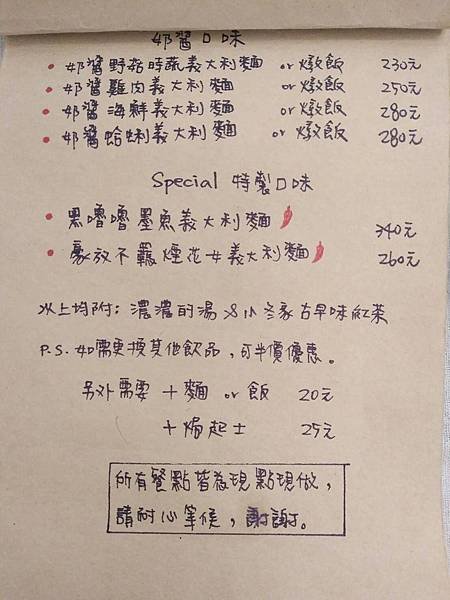 奶醬口味
奶醬野菇時蔬義大利麵 or 燉飯 230元
奶醬雞肉義大利麵 or 燉飯 250元
奶醬海鮮義大利麵 or 燉飯 280元
奶醬蛤蜊義大利麵 or 燉飯 280元
Special 特製口味
黑嚕嚕墨魚義大利麵 340元
豪放不羈煙花女義大利麵 260元
以上均附:濃濃的湯 & 小冬家古早味紅茶
P.S. 如需更換其他飲品,可半價優惠。
另外需要 + 麵 or 飯 20元
+ 焗起士 25元
所有餐點皆為現點現做,
請耐心等候,謝謝。